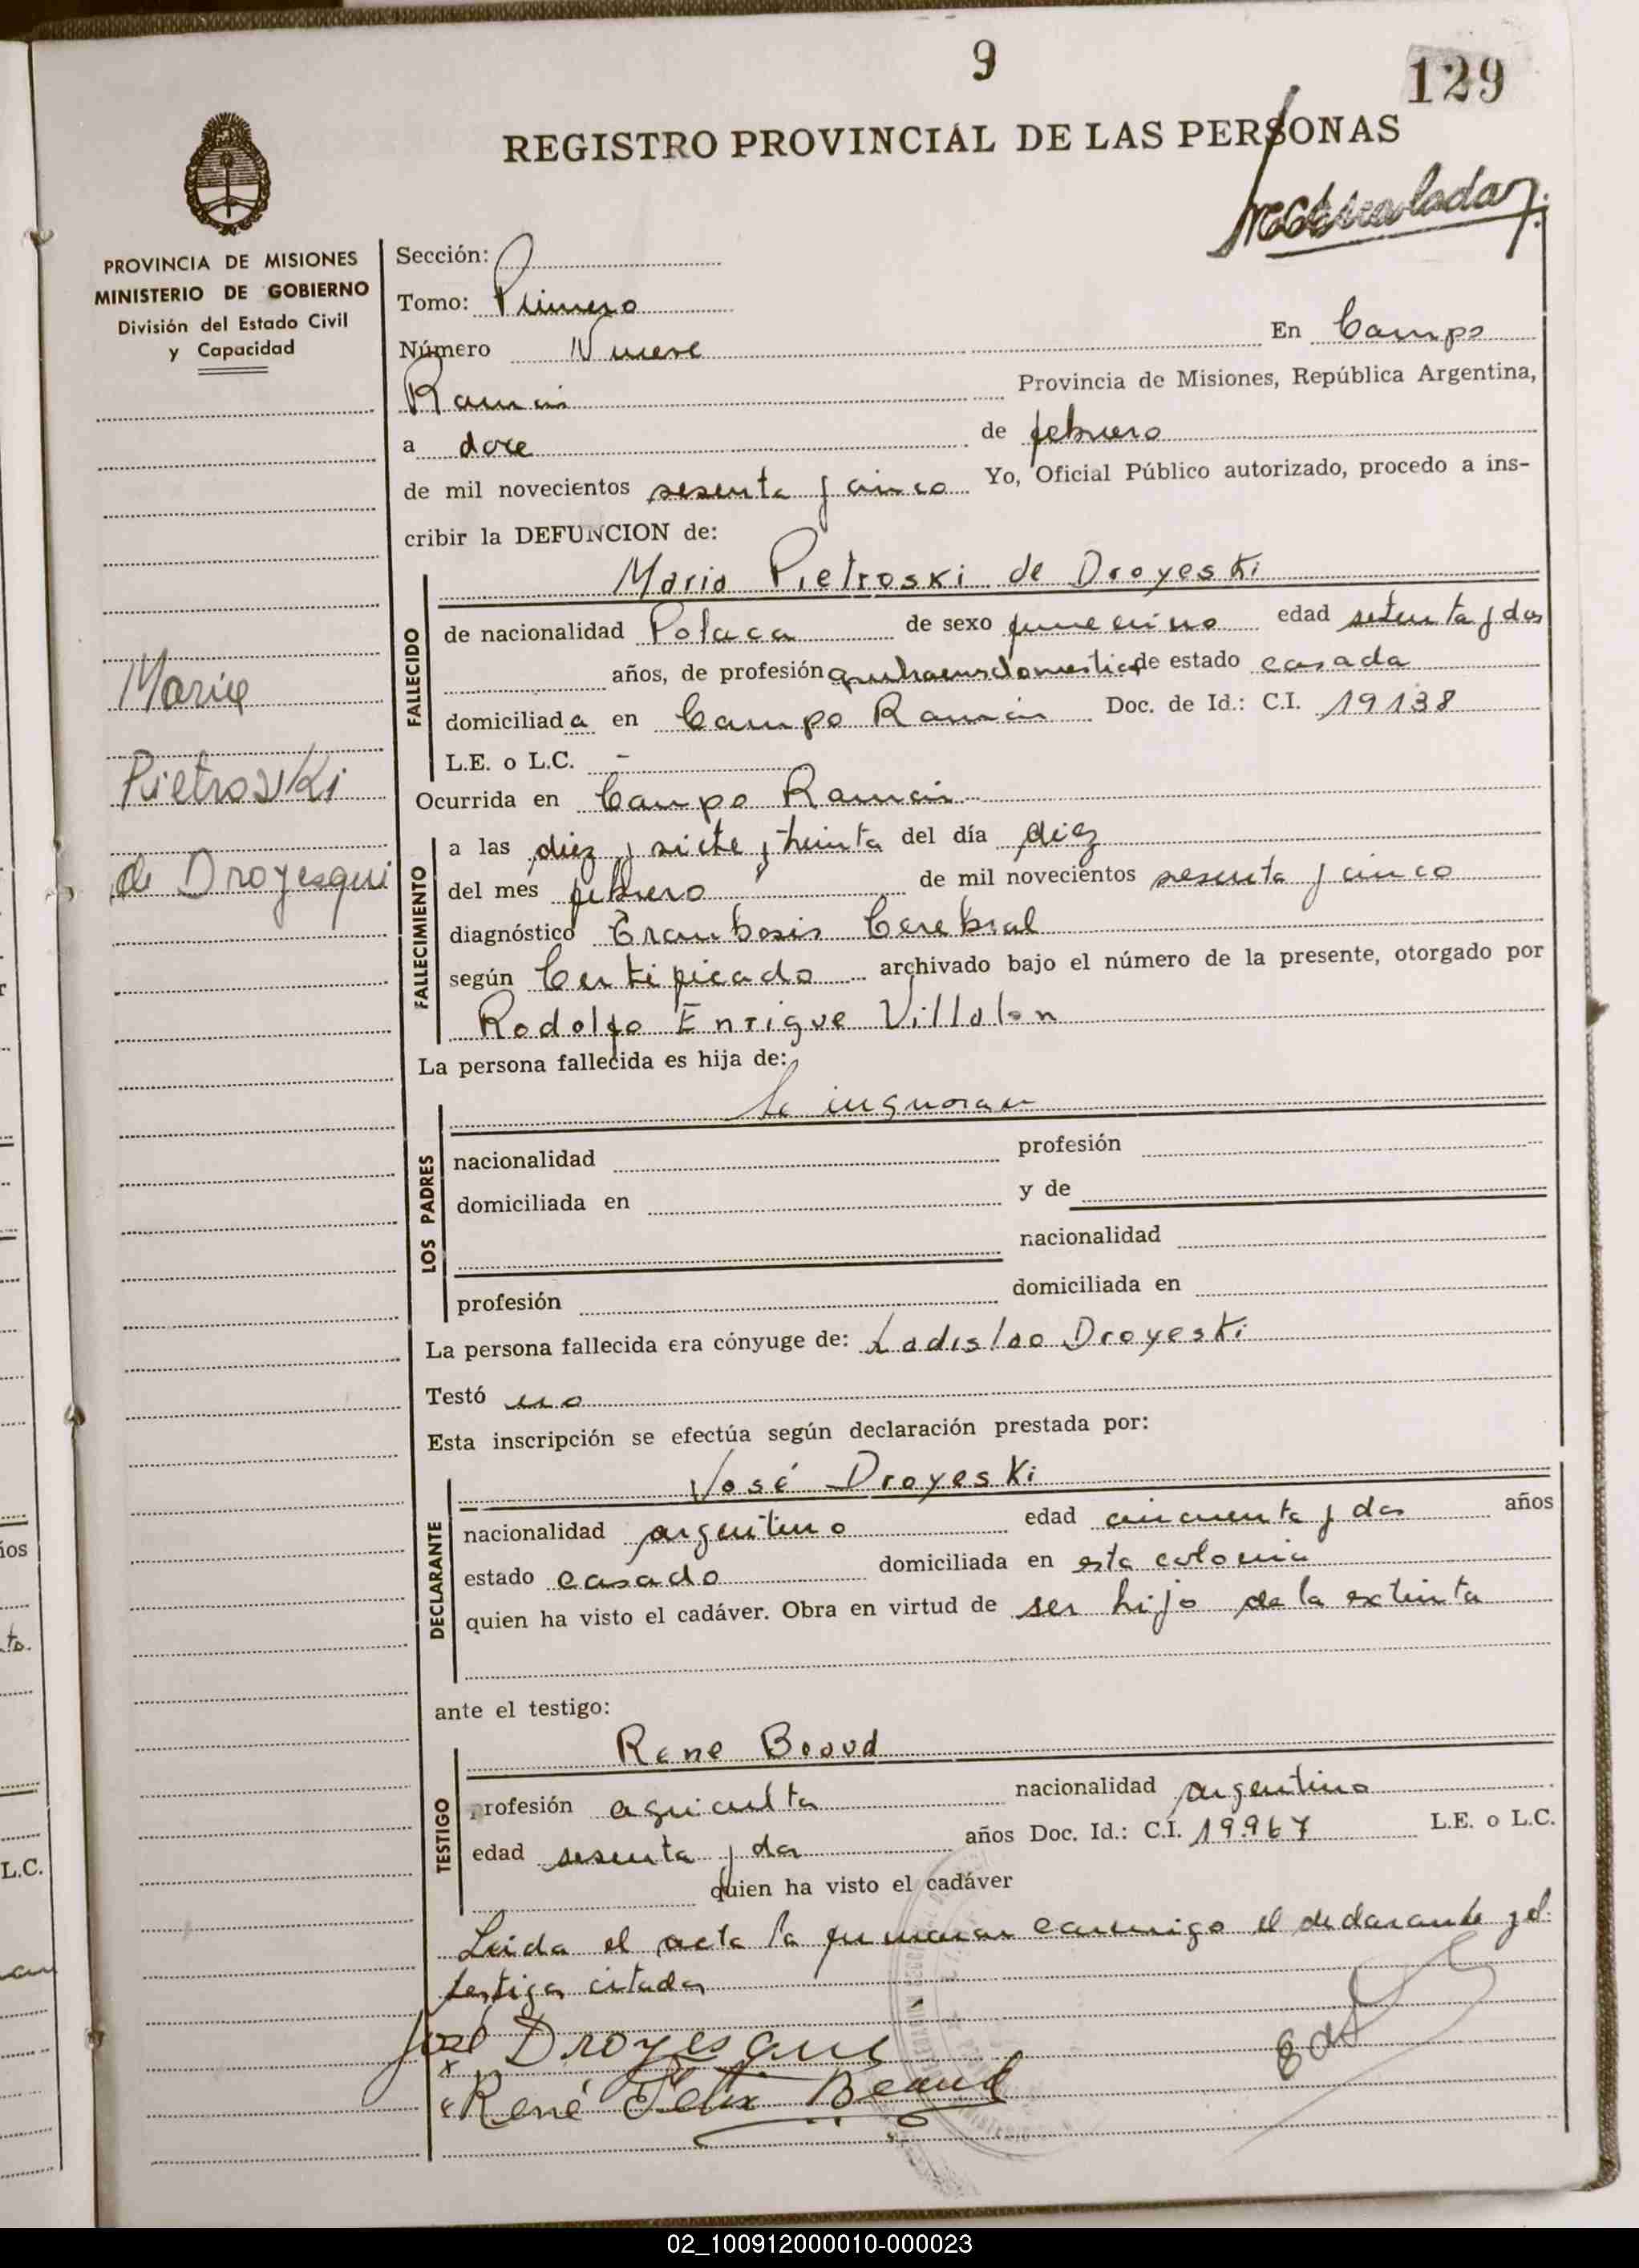 9
129
REGISTRO PROVINCIAL DE LAS PERSONAS
PROVINCIA DE MISIONES
MINISTERIO DE GOBIERNO
División del Estado Civil
y Capacidad
Sección:
Tomo: Primero
Número Nueve En Campo
Ramón Provincia de Misiones, República Argentina,
a doce de febrero
de mil novecientos sesenta y cinco Yo, Oficial Público autorizado, procedo a ins-
cribir la DEFUNCION de:
Maria Pietroski de Droyeski
FALLECIDO
de nacionalidad Polaca de sexo femenino edad setenta y dos
años, de profesión domestico de estado casada
domiciliada en Campo Ramón Doc. de Id.: C.I. 19138
L.E. o L.C. -
Maria
Pietroski
de Droyesqui
Ocurrida en Campo Ramón
FALLECIMIENTO
a las diez y siete y treinta del día diez
del mes febrero de mil novecientos sesenta y cinco
diagnóstico Trombosis Cerebral
según Certificado archivado bajo el número de la presente, otorgado por
Rodolfo Enrique Villalon
La persona fallecida es hija de:
Se ingnoran
LOS PADRES
nacionalidad profesión
domiciliada en y de
nacionalidad
profesión domiciliada en
La persona fallecida era cónyuge de: Ladislao Droyeski
Testó no
Esta inscripción se efectúa según declaración prestada por:
José Droyeski
DECLARANTE
nacionalidad argentino edad cincuenta y dos años
estado casado domiciliada en esta colonia
quien ha visto el cadáver. Obra en virtud de ser hijo de la extinta
ante el testigo:
Rene Beaud
TESTIGO
profesión agriculto nacionalidad argentino
edad sesenta y dos años Doc. Id.: C.I. 19.967 L.E. o L.C.
quien ha visto el cadáver
Leida el acta la firmaran conmigo el declarante y el
testigos citados
José Droyesqui
René Felix Beaud
ños
to.
L.C.
02_100912000010-000023